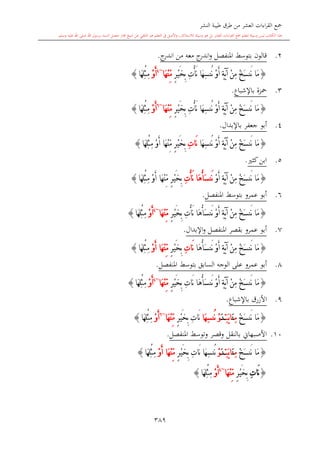 جمع القراءات العشر من طرق طيبة النشر
٢. قالون بتوسط المنفصل واندرج معه من اندرج.
﴿ مَا نَنسَخْ مِنْ ءَايَةٍ أَوْ نُنسِهَا نَأْتِ بِخَيْرٍ مِّنْهَا أَوْ مِثْلِهَا ﴾
٣. حمزة بالإشباع.
﴿ مَا نَنسَخْ مِنْ ءَايَةٍ أَوْ نُنسِهَا نَأْتِ بِخَيْرٍ مِّنْهَا أَوْ مِثْلِهَا ﴾
٤. أبو جعفر بالإبدال.
﴿ مَا نَنسَخْ مِنْ ءَايَةٍ أَوْ نُنسِهَا نَاتِ بِخَيْرٍ مِّنْهَا أَوْ مِثْلِهَا ﴾
٥. ابن كثير.
﴿ مَا نَنسَخْ مِنْ ءَايَةٍ أَوْ نَنسَأْهَا نَأْتِ بِخَيْرٍ مِّنْهَا أَوْ مِثْلِهَا ﴾
٦. أبو عمرو بتوسط المنفصل.
﴿ مَا نَنسَخْ مِنْ ءَايَةٍ أَوْ نَنسَأْهَا نَأْتِ بِخَيْرٍ مِّنْهَا أَوْ مِثْلِهَا ﴾
٧. أبو عمرو بقصر المنفصل والإبدال.
﴿ مَا نَنسَخْ مِنْ ءَايَةٍ أَوْ نَنسَأْهَا نَاتِ بِخَيْرٍ مِّنْهَا أَوْ مِثْلِهَا ﴾
٨. أبو عمرو على الوجه السابق بتوسط المنفصل.
﴿ مَا نَنسَخْ مِنْ ءَايَةٍ أَوْ نَنسَأْهَا نَاتِ بِخَيْرٍ مِّنْهَا أَوْ مِثْلِهَا ﴾
٩. الأزرق بالإشباع.
١٠. الأصبهاني بالنقل وقصر وتوسط المنفصل.
٣٨٩